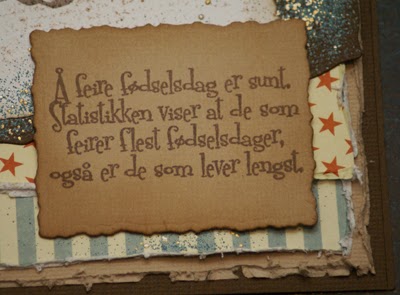 Å feire fødselsdag er sunt.
Statistikken viser at de som
feirer flest fødselsdager,
også er de som lever lengst.